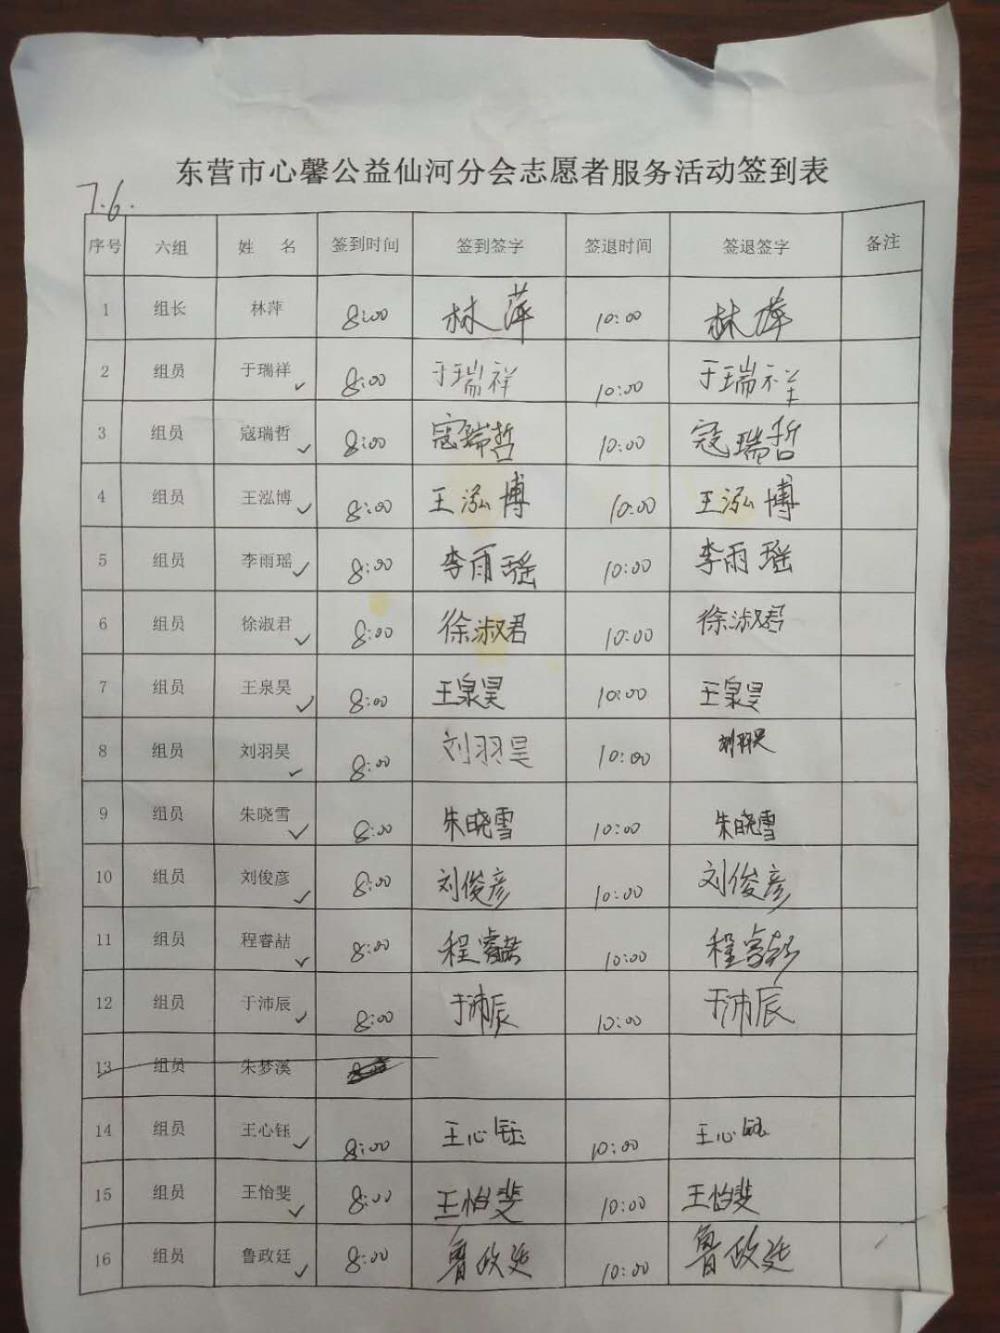 东营市心馨公益仙河分会志愿者服务活动签到表
7.6.
序号 六组 姓 名 签到时间 签到签字 签退时间 签退签字 备注
1 组长 林萍 8:00 林萍 10:00 林萍
2 组员 于瑞祥 8:00 于瑞祥 10:00 于瑞祥
3 组员 寇瑞哲 8:00 寇瑞哲 10:00 寇瑞哲
4 组员 王泓博 8:00 王泓博 10:00 王泓博
5 组员 李雨瑶 8:00 李雨瑶 10:00 李雨瑶
6 组员 徐淑君 8:00 徐淑君 10:00 徐淑君
7 组员 王泉昊 8:00 王泉昊 10:00 王泉昊
8 组员 刘羽昊 8:00 刘羽昊 10:00 刘羽昊
9 组员 朱晓雪 8:00 朱晓雪 10:00 朱晓雪
10 组员 刘俊彦 8:00 刘俊彦 10:00 刘俊彦
11 组员 程睿喆 8:00 程睿喆 10:00 程睿喆
12 组员 于沛辰 8:00 于沛辰 10:00 于沛辰
13 组员 朱梦溪
14 组员 王心钰 8:00 王心钰 10:00 王心钰
15 组员 王怡斐 8:00 王怡斐 10:00 王怡斐
16 组员 鲁政廷 8:00 鲁政廷 10:00 鲁政廷